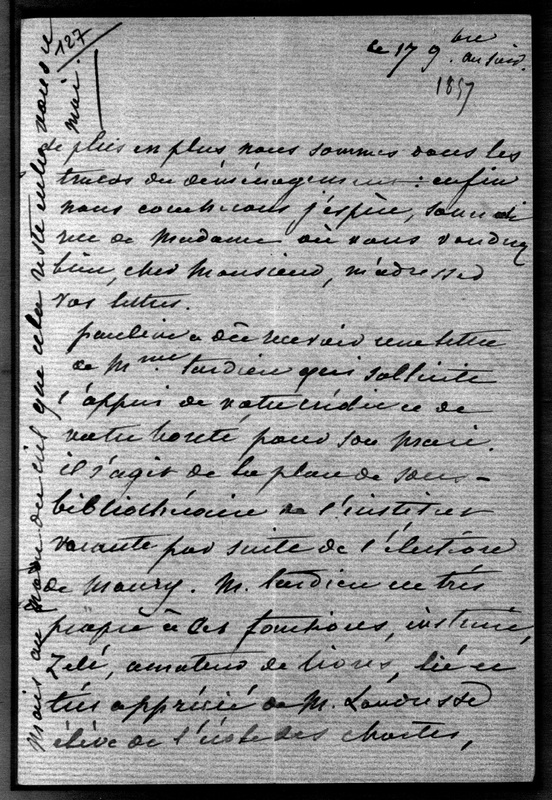 127
le 17 9.bre au soir.
1857
de plus en plus nous sommes dans les
tracas du déménagement : enfin
nous coucherons j'espère, samedi
rue de Madame où vous voudrez
bien, cher Monsieur, m'adresser
vos lettres.
pauline a dû recevoir une lettre
de Mme tardieu qui sollicite
l'appui de votre crédit et de
votre bonté pour son mari.
il s'agit de la place de sous-
bibliothécaire de l'institut
vacante par suite de l'élection
de Maury. M. tardieu est très
propre à ces fonctions, instruit,
Zélé, amateur de livres, lié et
très apprécié de M. Landresse
élève de l'école des chartes,
Mais au nom du ciel que cela reste entre vous et
moi.